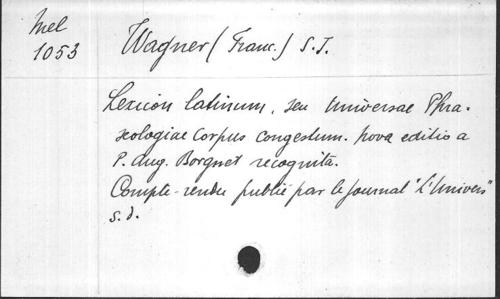 Mel
1053
Wagner (Franc.) S.J.
Lexicon latinum, seu Universae Phra-
seologiae Corpus congestum. nova editio a
P. Aug. Borgnet recognita.
Compte-rendu publié par le journal "l'Univers"
s.d.